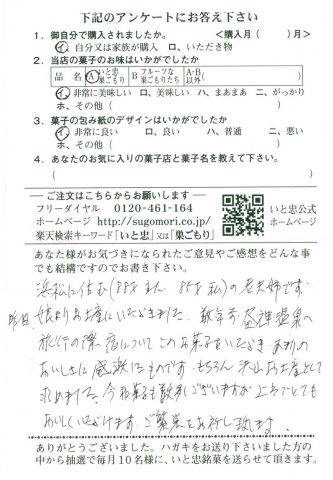 下記のアンケートにお答え下さい
1. 御自分で購入されましたか。 <購入月( )月>
イ、自分又は家族が購入 ロ、いただき物
2. 当店の菓子のお味はいかがでしたか
品名 A いと忠 巣ごもり B フルーツな 巣ごもりたち A・B 以外( )
イ、非常に美味しい ロ、美味しい ハ、まあまあ ニ、がっかり
ホ、その他( )
3. 菓子の包み紙のデザインはいかがでしたか
イ、非常に良い ロ、良い ハ、普通 ニ、悪い
ホ、その他( )
4. あなたのお気に入りの菓子店と菓子名を教えて下さい。
( )
ご注文はこちらからお願いします
フリーダイヤル 0120-461-164
ホームページ http://sugomori.co.jp/
楽天検索キーワード「いと忠」又は「巣ごもり」
いと忠公式
ホームページ
あなた様がお気づきになられたご意見やご感想をどんな事
でも結構ですのでお書き下さい。
浜松に住む(88才 主人 85才 私)の老夫婦です。
昨日、娘よりお土産にいただきました。数年前 昼神温泉へ
旅行の際、宿についてこのお菓子をいただき、あまりの
おいしさに感激したものです。もちろん沢山お土産として
求めました。今和菓子も数多くございますが とてもとても
おいしくいただけます。ご繁栄をお祈り致します。
ありがとうございました。ハガキをお送り下さいました方の
中から抽選で毎月10名様に、いと忠銘菓を送らせて頂きます。